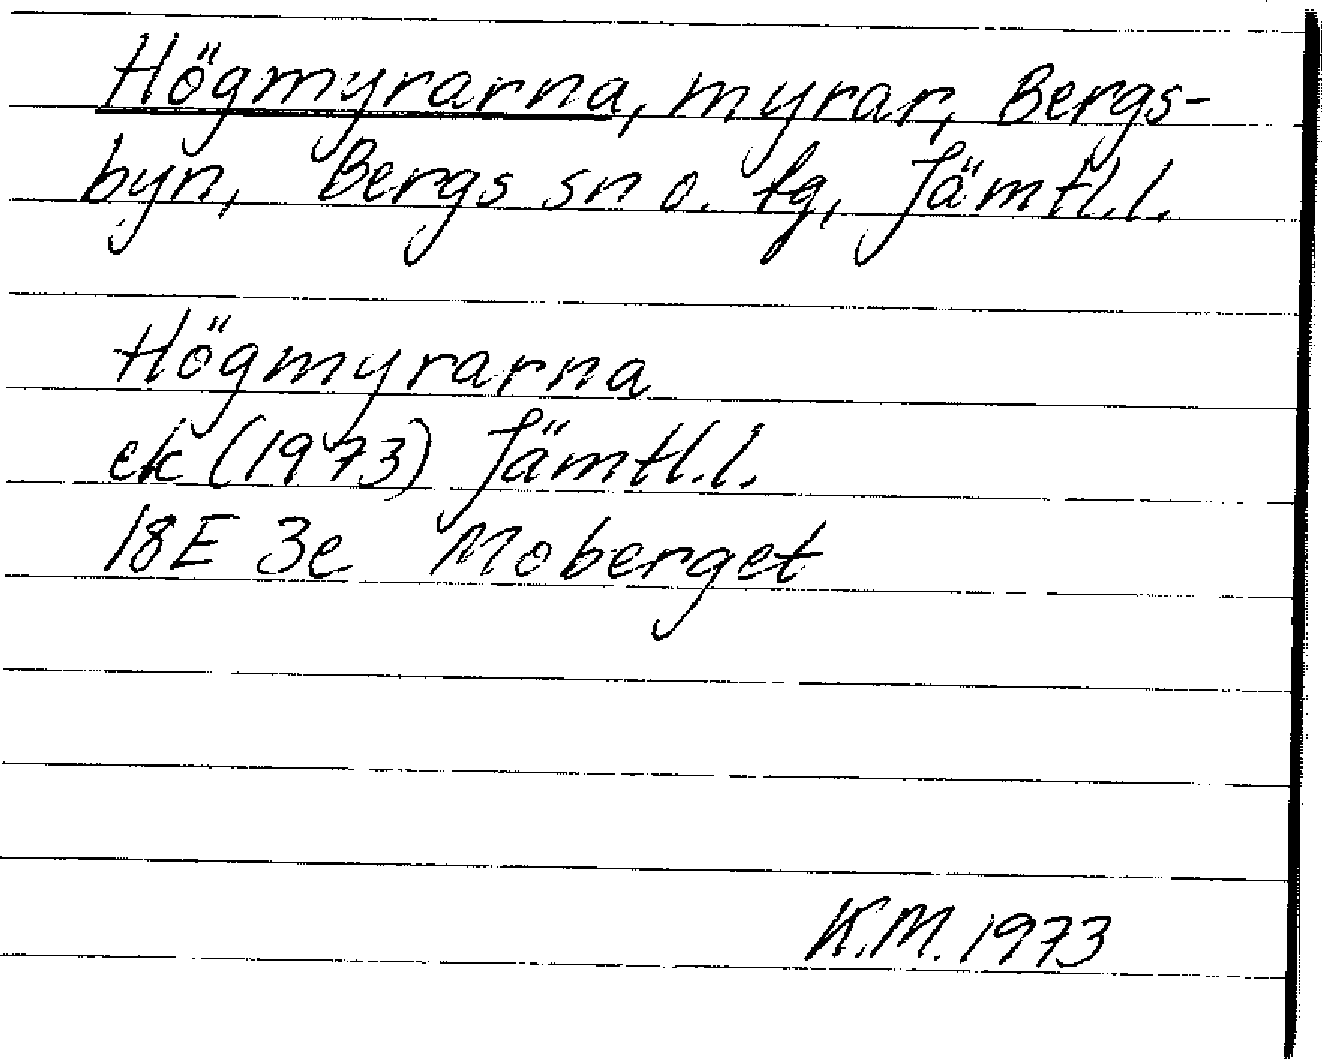 Högmyrarna, myrar, Bergs-
byn, Bergs sn o. tg, Jämtl.l.
Högmyrarna
ek (1973) Jämtl.l.
18E 3e Moberget
K.M. 1973